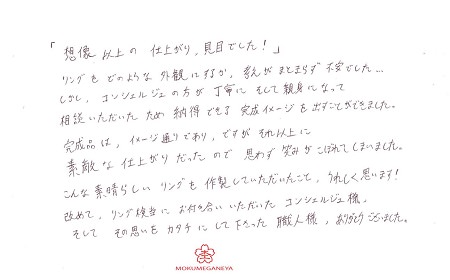 「想像以上の仕上がり,見目でした!」
リングをどのような外観にするか,考えがまとまらず不安でした...
しかし,コンシェルジュの方が丁寧にそして親身になって
相談いただいたため納得できる完成イメージを出すことができました。
完成品は,イメージ通りであり,ですがそれ以上に
素敵な仕上がりだったので思わず笑みがこぼれてしまいました。
こんな素晴らしいリングを作製していただいたこと,うれしく思います!
改めて,リング検討にお付き合いいただいたコンシェルジュ様,
そしてその思いをカタチにして下さった職人様,ありがとうございました。
MOKUMEGANEYA